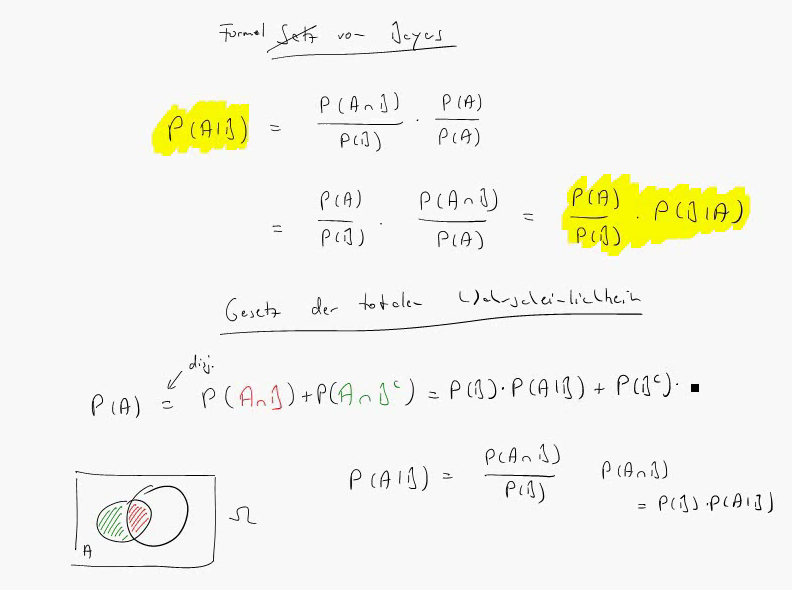 Formel Satz von Bayes
P(A|B) = P(A∩B)/P(B) · P(A)/P(A)
= P(A)/P(B) · P(A∩B)/P(A) = P(A)/P(B) · P(B|A)
Gesetz der totalen Wahrscheinlichkeit
disj.
P(A) = P(A∩B) + P(A∩Bᶜ) = P(B)·P(A|B) + P(Bᶜ)·
P(A|B) = P(A∩B)/P(B) P(A∩B)
= P(B)·P(A|B)
A Ω